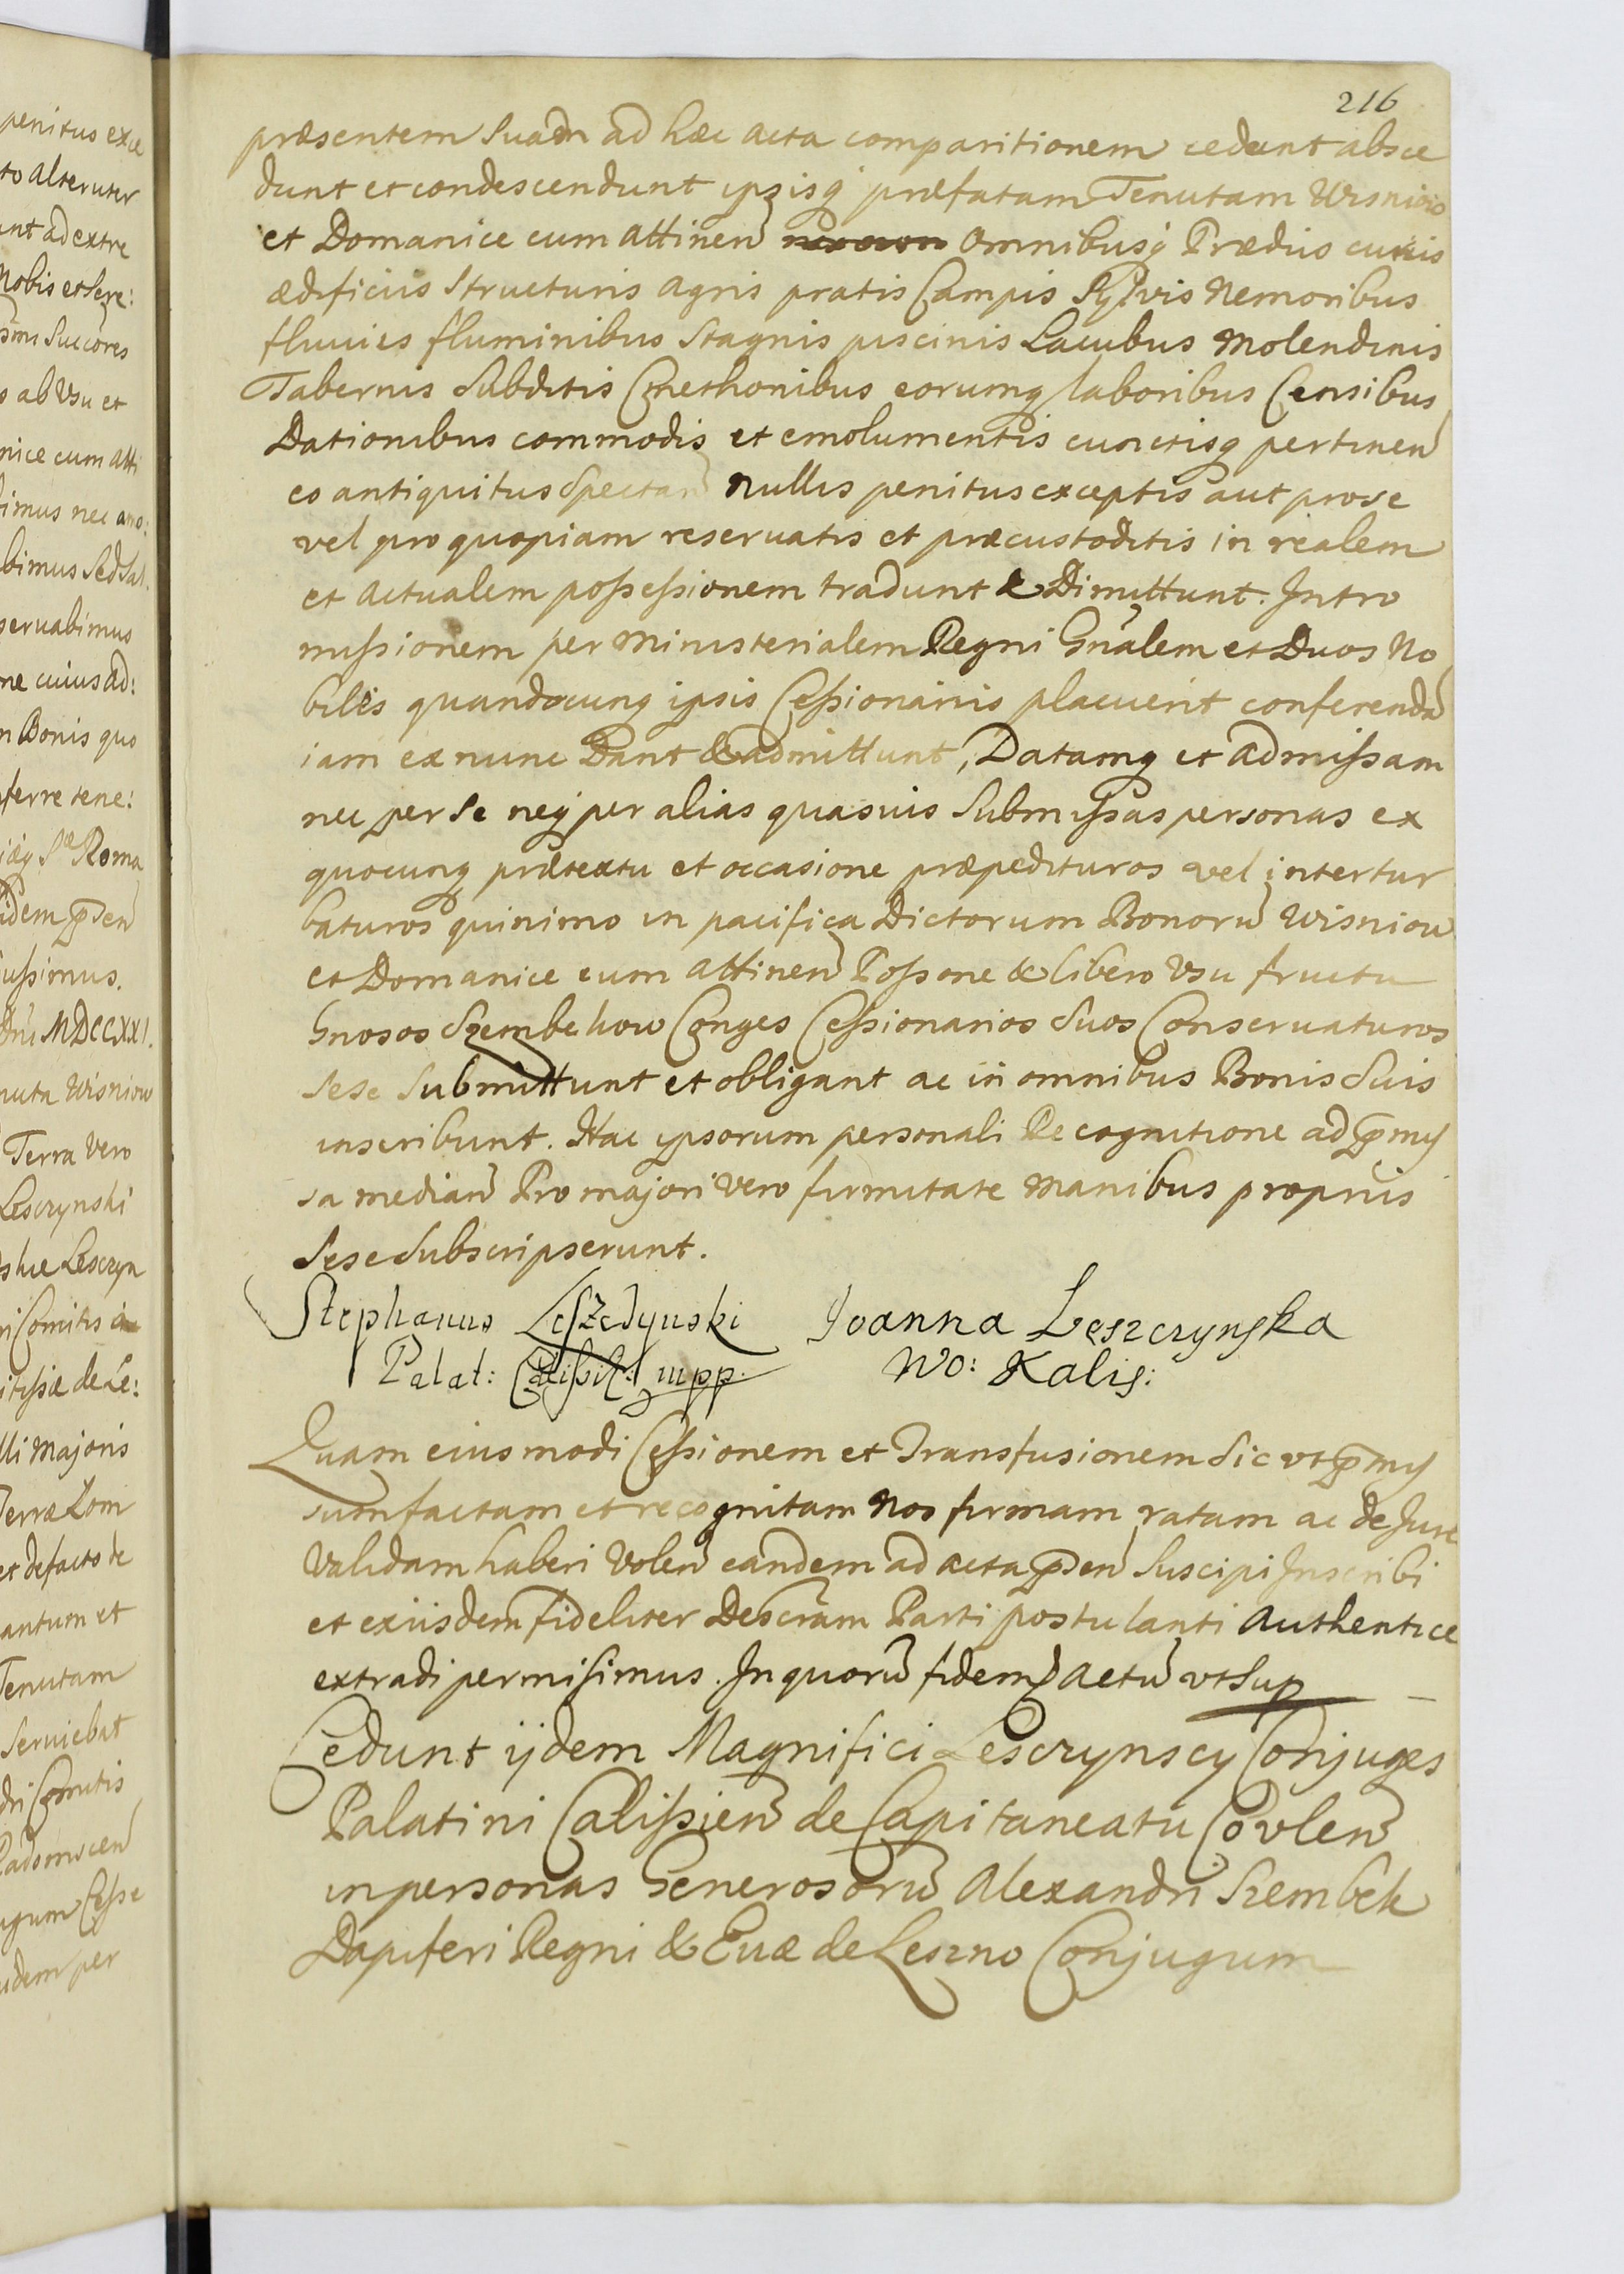 216
præsentem Suam ad hæc acta comparitionem cedunt absce
dunt et condescendunt ipsisq præfatam Tenutam Wisniow
et Domanice cum attinen omnibusq Prædiis curiis
ædificiis Structuris agris pratis Campis Sylvis Nemoribus
fluviis fluminibus Stagnis piscinis Lacubus Molendinis
Tabernis Subditis Cmethonibus eorumq laboribus Censibus
Dationibus commodis et emolumentis cunctisq pertinen
eo antiquitus Spectan nullis penitus exceptis aut pro se
vel pro quopiam reservatis et præcustoditis in realem
et actualem possessionem tradunt & Dimittunt. Intro
missionem per Ministerialem Regni Gnãlem et Duos No
biles quandocunq ipsis Cessionariis placuerit conferendã
iam ex nunc Dant & admittunt, Datamq et admissam
nec per se neq per alias quasvis Submissas personas ex
quocunq prætextu et occasione præpedituros vel intertur
baturos quinimo in pacifica Dictorum Bonorũ Wisniow
et Domanice cum attinen Possone & libero Usu fructu
Gnosos Szembekow Conges Cessionarios Suos Conservaturos
sese Submittunt et obligant ac in omnibus Bonis Suis
inscribunt. Hac ipsorum personali Recognitione ad pmis
sa median Pro majori vero firmitate Manibus propriis
Sese Subscripserunt.
Stephanus Leszczynski Joanna Leszczynska
Palat: Calissi: mpp. WO: Kalis:
Quam eiusmodi Cessionem et Transfusionem Sic vt pmis
sum factam et recognitam Nos firmam ratam ac de Jure
Validam haberi Volen eandem ad acta psen Suscipi Inscribi
et exiisdem fideliter Descram Parti postulanti Authentice
extradi permisimus. In quorũ fidem Actũ vt Sup
Cedunt ijdem Magnifici Lescrynscy Conjuges
Palatini Calissien de Capitaneatu Covlen
in personas Generosorũ Alexandri Szembek
Dapiferi Regni & Evæ de Leszno Conjugum